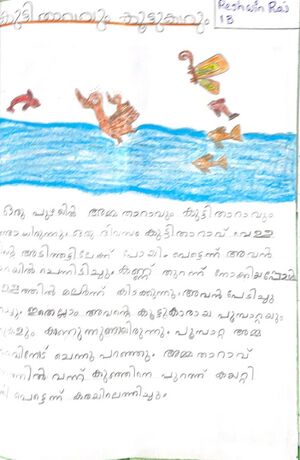 കുട്ടിത്താറാവും കൂട്ടുകാരും
Reshwin Raj
1B
ഒരു പുഴയിൽ അമ്മ താറാവും കുട്ടിതാറാവും
ഒരു ദിവസം കുട്ടിതാറാവ് വെള്ള
അടിത്തട്ടിലേക്ക് പോയി. പെട്ടെന്ന് അവൻ
ചെന്നിടിച്ചു. കണ്ണ് തുറന്ന് നോക്കിയപ്പോൾ
മലർന്ന് കിടക്കുന്നു. അവൻ പേടിച്ചു
ഇതെല്ലാം അവന്റെ കൂട്ടുകാരായ പൂമ്പാറ്റയും
കാണുന്നുണ്ടായിരുന്നു. പൂമ്പാറ്റ അമ്മ
ചെന്നു പറഞ്ഞു. അമ്മതാറാവ്
വന്ന് കുഞ്ഞിനെ പുറത്ത് കയറ്റി
പെട്ടെന്ന് കരയിലെത്തിച്ചു.